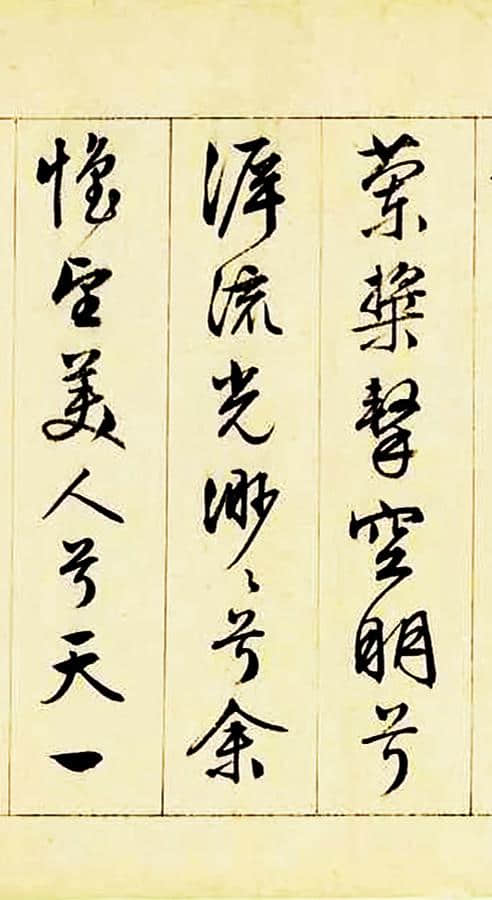 蘭槳擊空明兮
泝流光渺〻兮余
懷望美人兮天一